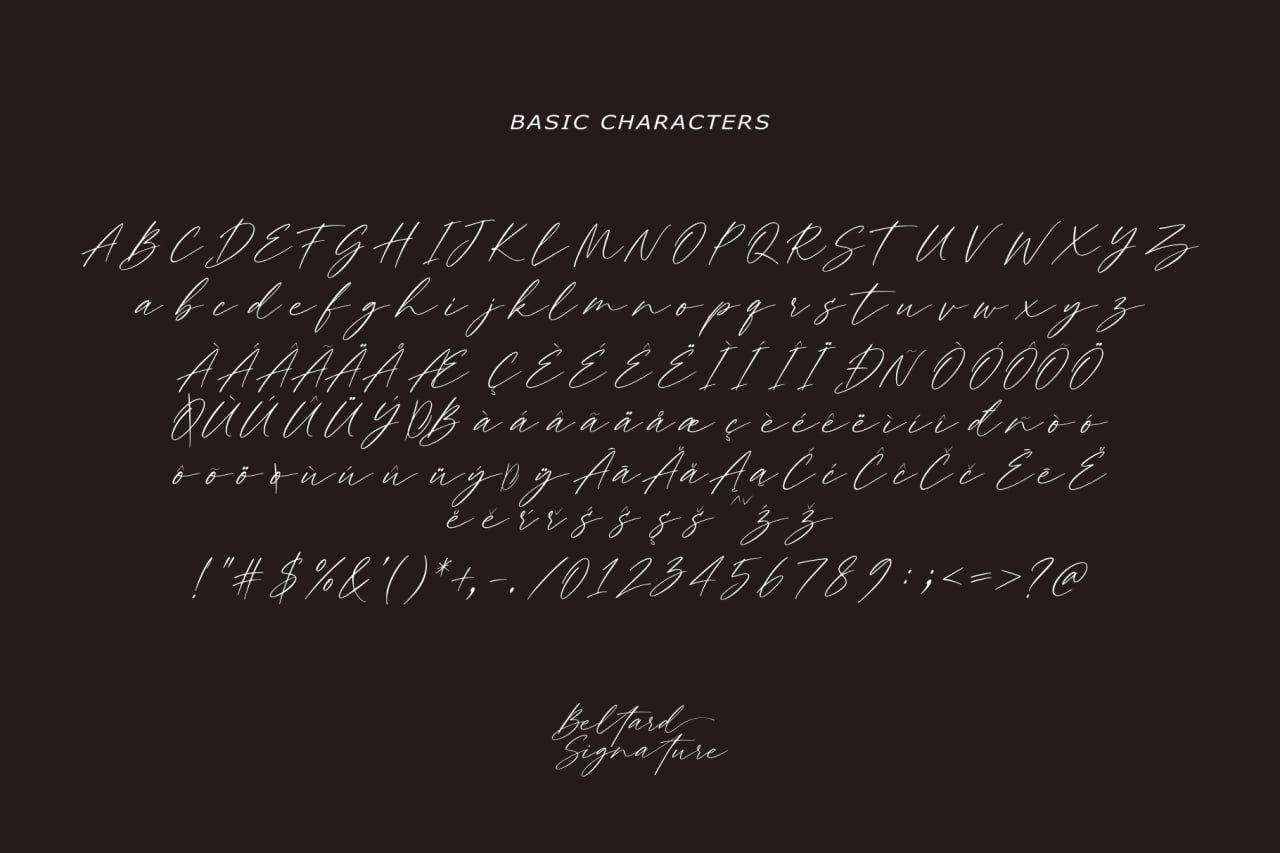 BASIC CHARACTERS
A B C D E F G H I J K L M N O P Q R S T U V W X Y Z
a b c d e f g h i j k l m n o p q r s t u v w x y z
À Á Â Ã Ä Å Æ Ç È É Ê Ë Ì Í Î Ï Ð Ñ Ò Ó Ô Õ Ö
Ø Ù Ú Û Ü Ý Þ ß à á â ã ä å æ ç è é ê ë ì í î đ ñ ò ó
ô õ ö ø ù ú û ü ý þ ÿ Ā ā Ă ă Ą ą Ć ć Ĉ ĉ Č č Ē ē Ĕ
ĕ ě ŕ ř ś ŝ ş š ^ˇ ź ž
! " # $ % & ' ( ) * + , - . / 0 1 2 3 4 5 6 7 8 9 : ; < = > ? @
Beltard
Signature